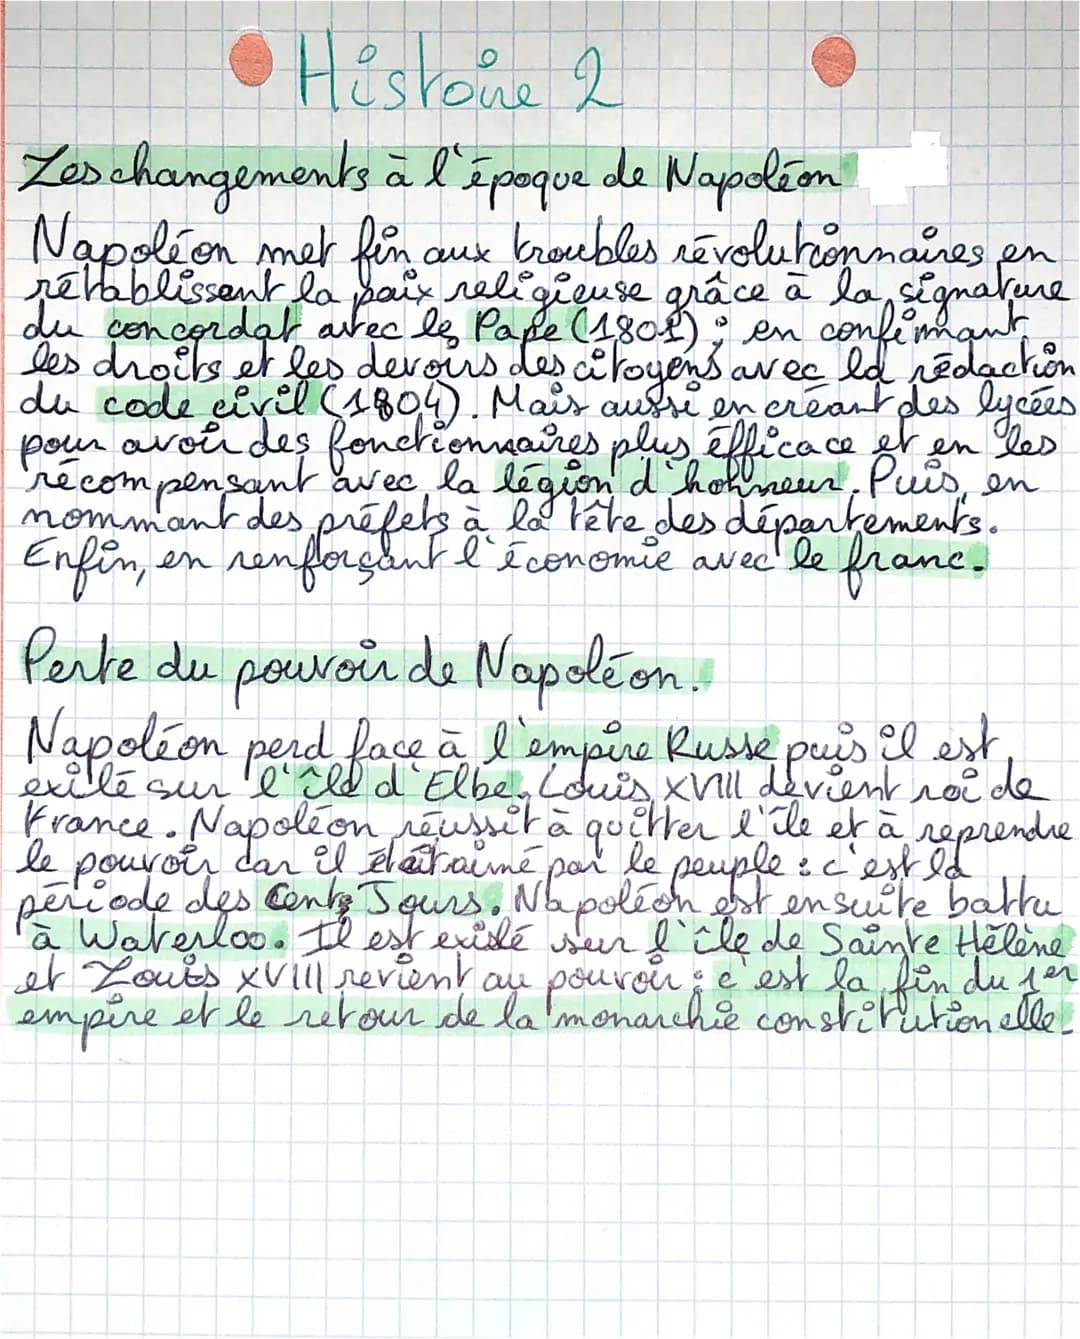 Histoire 2
Les changements à l'époque de Napoléon
Napoléon met fin aux troubles révolutionnaires en
rétablissant la paix religieuse grâce à la signature
du concordat avec le Pape (1801) ; en confirmant
les droits et les devoirs des citoyens avec la rédaction
du code civil (1804). Mais aussi en créant des lycées
pour avoir des fonctionnaires plus éfficace et en les
récompensant avec la légion d'honneur. Puis, en
nommant des préfets à la tête des départements.
Enfin, en renforçant l'économie avec le franc.
Perte du pouvoir de Napoléon.
Napoléon perd face à l'empire Russe puis il est
exilé sur l'île d'Elbe. Louis XVIII devient roi de
France. Napoléon réussit à quitter l'île et à reprendre
le pouvoir car il était aimé par le peuple : c'est la
période des Cents Jours. Napoléon est ensuite battu
à Waterloo. Il est exilé sur l'île de Sainte Hélène
et Louis XVIII revient au pouvoir : c'est la fin du 1er
empire et le retour de la monarchie constitutionelle.